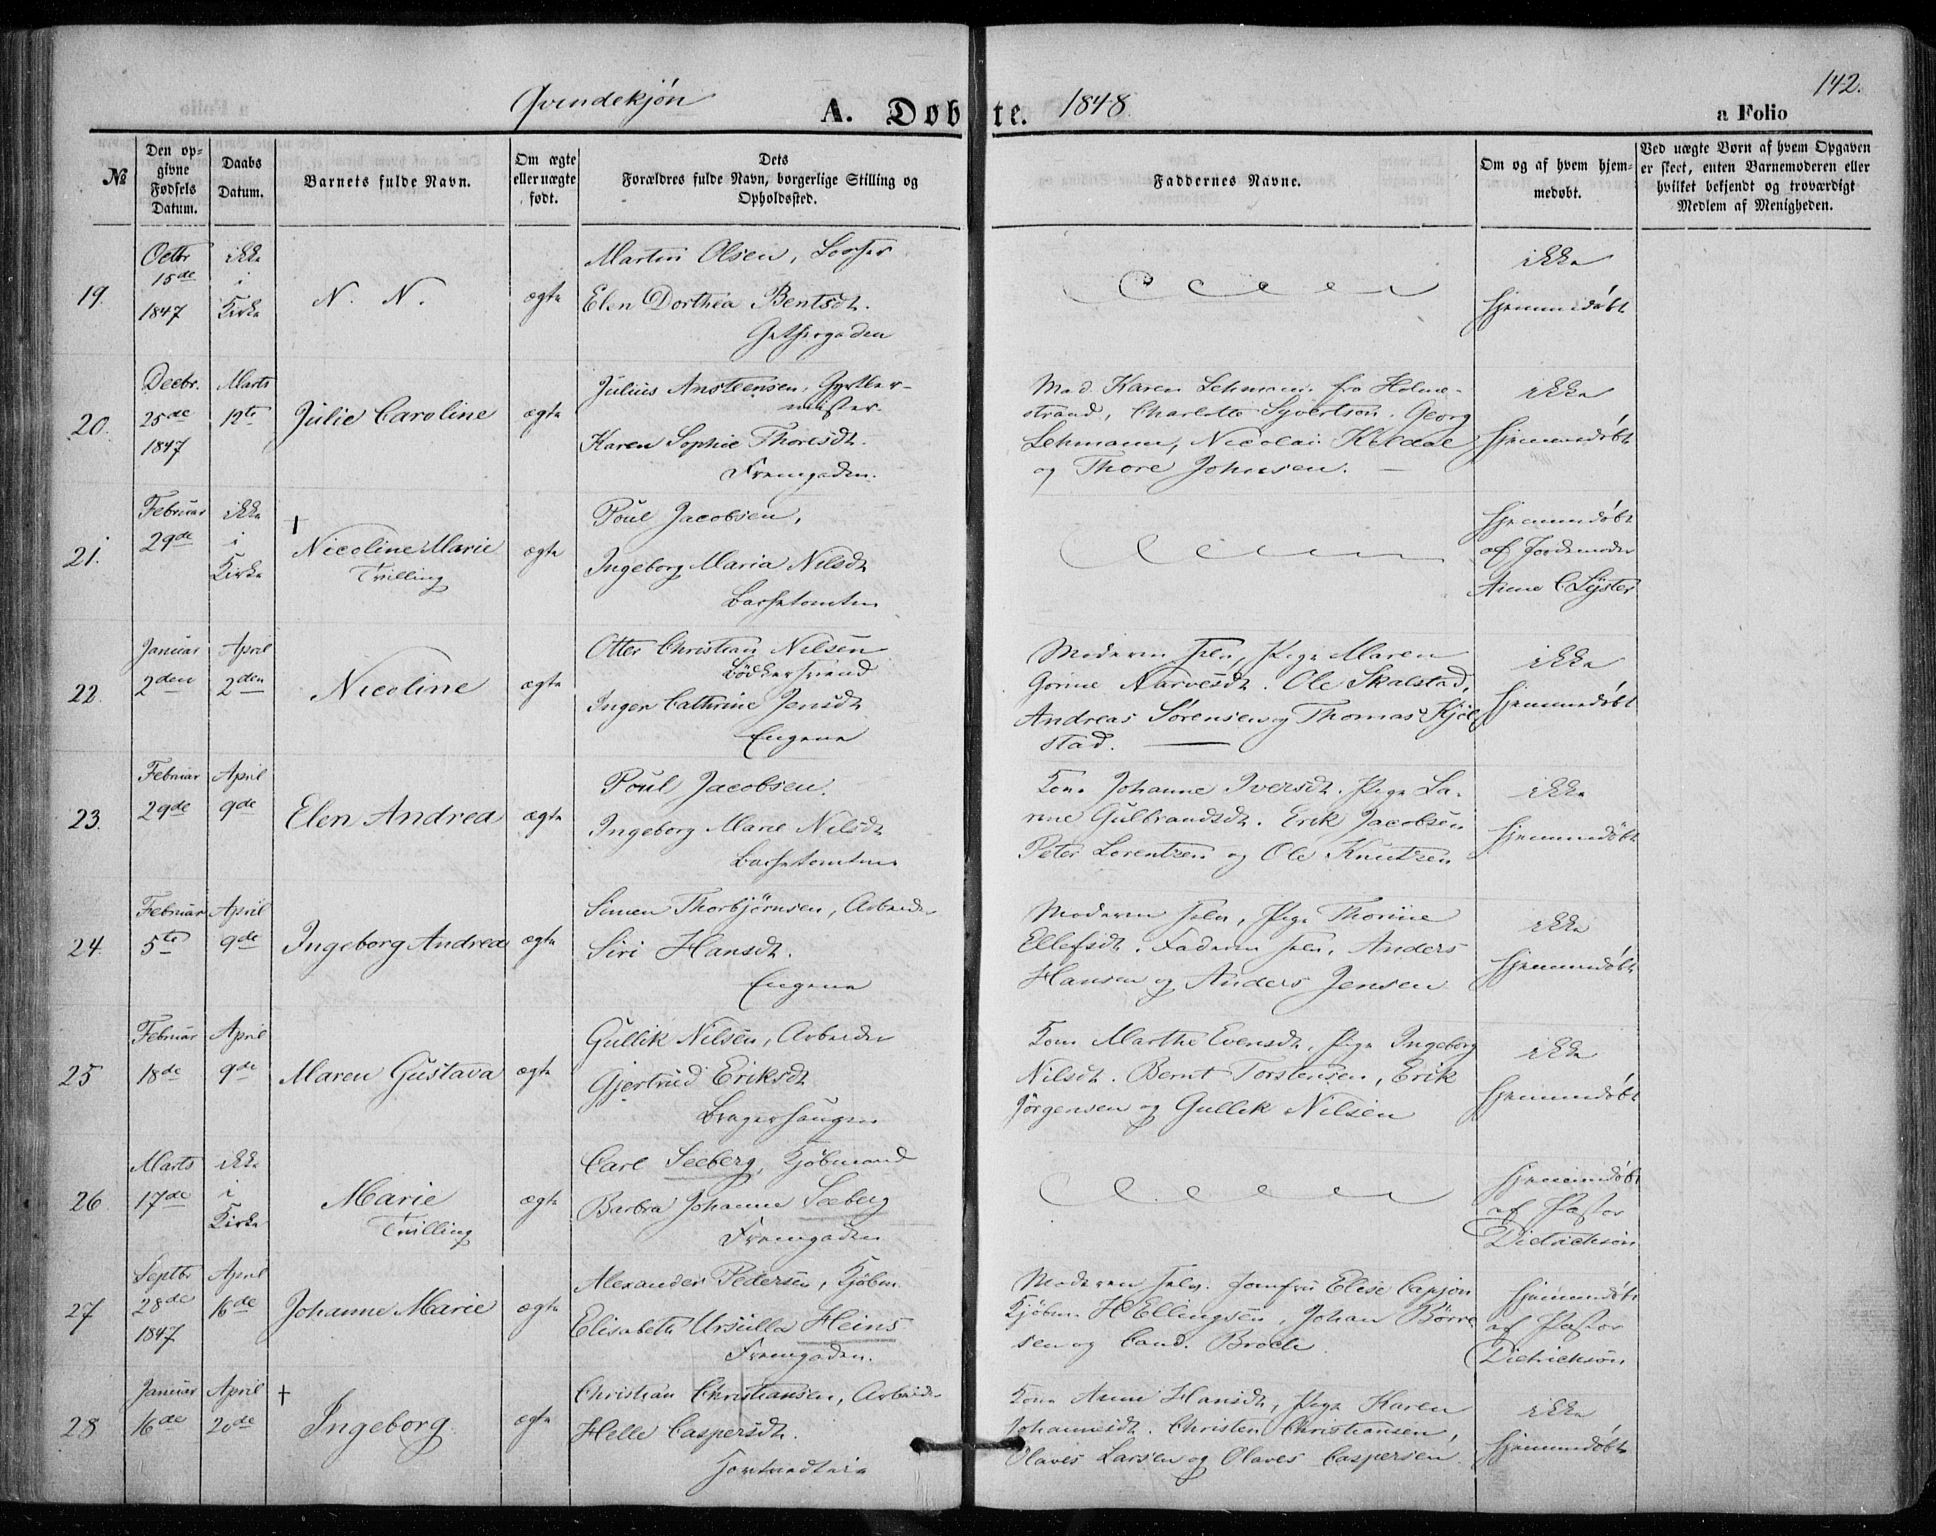 Qvindekjøn A. Døbte. 1848. 142.
a Folio
№
Den opgivne Fødsels Datum.
Daabs Datum.
Barnets fulde Navn.
Om ægte eller uægte født.
Dets Forældres fulde Navn, borgerlige Stilling og Opholdssted.
Faddernes Navne.
Om og af hvem hjemmedøbt.
Ved uægte Børn af hvem Opgaven er skeet, enten Barnemoderen eller hvilket bekjendt og troværdigt Medlem af Menigheden.
19.
Octbr 15de 1847
ikke i Kirke
N. N.
ægte
Martin Olsen,
Elen Dorthea Bentsdt.
ikke hjemmedøbt
20.
Decbr. 25de 1847
Marts 12te
Julie Caroline
ægte
Julius Ansteensen, Gjørtler-
mester.
Karen Sophie Thoresdt.
Fremgaden.
Mad Karen Lehmann fra Holme-
strand, Charlotte Syvertson. Georg
Lehmann, Nicolai Keldal
og Thore Johnsen.
ikke hjemmedøbt
21.
Februar 29de
ikke i Kirke
†
Nicoline Marie
Tvilling
ægte
Poul Jacobsen,
Ingeborg Maria Nilsdt
hjemmedøbt
af Jordemoder
Anne C Lyster
22.
Januar 2den
April 2den
Nicoline
ægte
Otter Christian Nilsen
Bødkersvend
Inger Cathrine Jensdt
Engene
Moderen selv, Pige Maren
Gorine Narvesdt. Ole Skalstad,
Andreas Sørensen og Thomas Kjøl
stad.
ikke hjemmedøbt
23.
Februar 29de
April 9de
Elen Andrea
ægte
Poul Jacobsen.
Ingeborg Marie Nilsdt
Kone Johanne Iversdt. Pige La-
rine Gulbrandsdt. Erik Jacobsen
Peter Lorentzen og Ole Knutzen
ikke hjemmedøbt
24.
Februar 5te
April 9de
Ingeborg Andrea
ægte
Simen Thorbjørnsen, Arbeider
Siri Hansdt.
Engene
Moderen selv, Pige Thorine
Ellefsdt. Faderen selv, Anders
Hansen og Anders Jensen
ikke hjemmedøbt
25
Februar 18de
April 9de
Maren Gustava
ægte
Gullik Nilsen, Arbeider
Gjertrud Eriksdt
Kone Marthe Evensdt, Pige Ingeborg
Nilsdt. Bernt Torstensen, Erik
Jørgensen og Gullik Nilsen
ikke hjemmedøbt
26
Marts 17de
ikke i Kirke
Marie
Tvilling
ægte
Carl Seeberg, Kjøbmand
Barbra Johanne Seeberg
Fremgaden
hjemmedøbt
af Pastor
Dietrichson
27
Septbr 28de 1847
April 16de
Johanne Marie
ægte
Alexander Pedersen, Kjøbm.
Elisabeth Ursulla Heins
Fremgaden.
Moderen selv. Jomfru Elise Capjon
Kjøbm. H Ellingsen, Johan Børre
sen og Cand. Broch
hjemmedøbt
af Pastor
Dietrichson
28
Januar 16de
April 20de
†
Ingeborg
ægte
Christian Christiansen, Arbeider
Helle Caspersdt.
Kone Anne Hansdt, Pige Karen
Johannesdt. Christen Christiansen,
Olaves Larsen og Olaves Caspersen
ikke hjemmedøbt